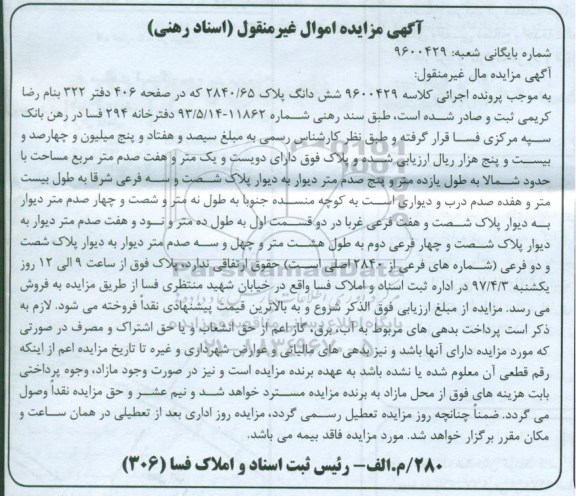 آگهی مزایده اموال غیرمنقول (اسناد رهنی)
شماره بایگانی شعبه: ۹۶۰۰۴۲۹
آگهی مزایده مال غیرمنقول:
به موجب پرونده اجرائی کلاسه ۹۶۰۰۴۲۹ شش دانگ پلاک ۲۸۴۰/۶۵ که در صفحه ۴۰۶ دفتر ۳۲۲ بنام رضا
کریمی ثبت و صادر شده است، طبق سند رهنی شماره ۱۱۸۶۲-۹۳/۵/۱۴ دفترخانه ۲۹۴ فسا در رهن بانک
سپه مرکزی فسا قرار گرفته و طبق نظر کارشناس رسمی به مبلغ سیصد و هفتاد و پنج میلیون و چهارصد و
بیست و پنج هزار ریال ارزیابی شده و پلاک فوق دارای دویست و یک متر و هفت صدم متر مربع مساحت با
حدود شمالا به طول یازده متر و پنج صدم متر دیوار به دیوار پلاک شصت و سه فرعی شرقا به طول بیست
متر و هفده صدم درب و دیواری است به کوچه منسده جنوبا به طول نه متر و شصت و چهار صدم متر دیوار
به دیوار پلاک شصت و هفت فرعی غربا در دو قسمت اول به طول ده متر و نود و هفت صدم متر دیوار به
دیوار پلاک شصت و چهار فرعی دوم به طول هشت متر و چهل و سه صدم متر دیوار به دیوار پلاک شصت
و دو فرعی (شماره های فرعی از ۲۸۴۰ اصلی است) حقوق ارتفاقی ندارد، پلاک فوق از ساعت ۹ الی ۱۲ روز
یکشنبه ۹۷/۴/۳ در اداره ثبت اسناد و املاک فسا واقع در خیابان شهید منتظری فسا از طریق مزایده به فروش
می رسد. مزایده از مبلغ ارزیابی فوق الذکر شروع و به بالاترین قیمت پیشنهادی نقداً فروخته می شود. لازم به
ذکر است پرداخت بدهی های مربوط به آب، برق، گاز اعم از حق انشعاب و یا حق اشتراک و مصرف در صورتی
که مورد مزایده دارای آنها باشد و نیز بدهی های مالیاتی و عوارض شهرداری و غیره تا تاریخ مزایده اعم از اینکه
رقم قطعی آن معلوم شده یا نشده باشد به عهده برنده مزایده است و نیز در صورت وجود مازاد، وجوه پرداختی
بابت هزینه های فوق از محل مازاد به برنده مزایده مسترد خواهد شد و نیم عشر و حق مزایده نقداً وصول
می گردد. ضمناً چنانچه روز مزایده تعطیل رسمی گردد، مزایده روز اداری بعد از تعطیلی در همان ساعت و
مکان مقرر برگزار خواهد شد. مورد مزایده فاقد بیمه می باشد.
۲۸۰/م.الف- رئیس ثبت اسناد و املاک فسا (۳۰۶)